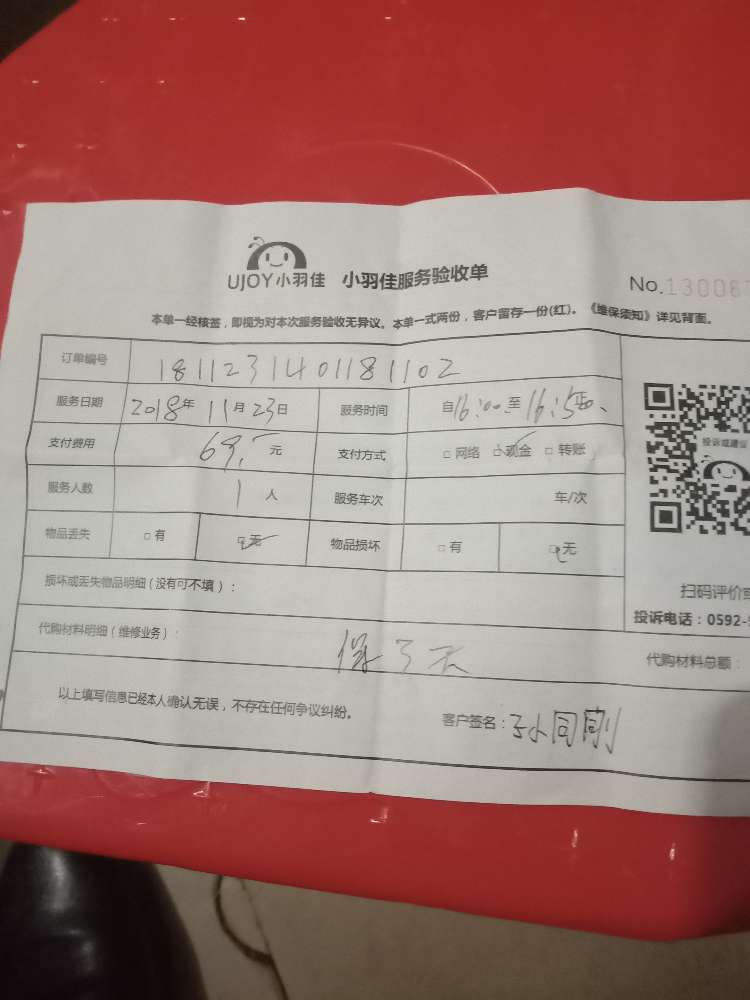 UJOY小羽佳 小羽佳服务验收单
No.13006
本单一经核签，即视为对本次服务验收无异议。本单一式两份，客户留存一份(红)。《维保须知》详见背面。
订单编号 1811231401181102
服务日期 2018年11月23日 服务时间 自16:00至16:50
支付费用 69.元 支付方式 □网络 □现金 □转账
服务人数 1人 服务车次 车/次
物品丢失 □有 □无 物品损坏 □有 □无
投诉或建议
扫码评价或
投诉电话：0592-
损坏或丢失物品明细（没有可不填）：
代购材料明细（维修业务）： 保3天 代购材料总额：
以上填写信息已经本人确认无误，不存在任何争议纠纷。 客户签名：